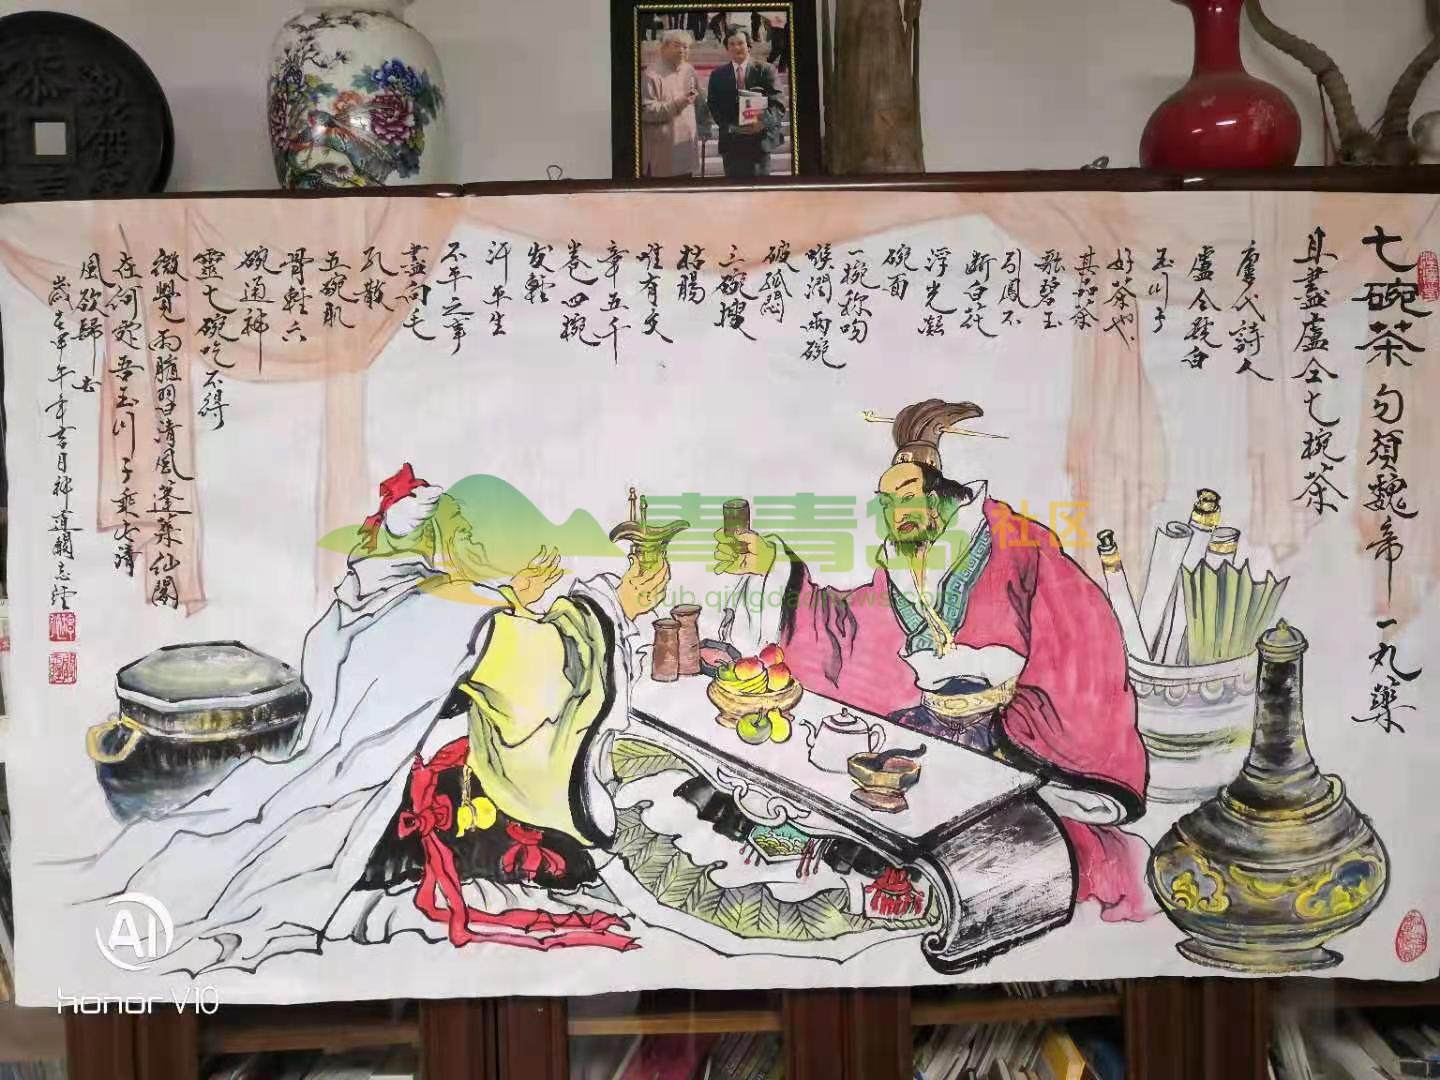 七碗茶
勺須魏帝一丸藥
且盡盧仝七椀茶
唐代詩人
盧仝號自
玉川子
好茶也、
其品茶
歌碧玉
引風不
断白花
浮光凝
碗面
一椀稱吻
喉潤兩碗
破孤悶
三碗搜
枯腸
唯有文
章五千
卷四椀
发輕
汗平生
不平之事
盡向毛
孔散
五碗肌
骨輕六
碗通神
靈七碗吃不得
微覺兩腋習清風蓬萊仙閣
在何處吾玉川子乘此清
風欲歸
甲午年
青青岛社区
club.qingdaonews.com
AI
honor V10